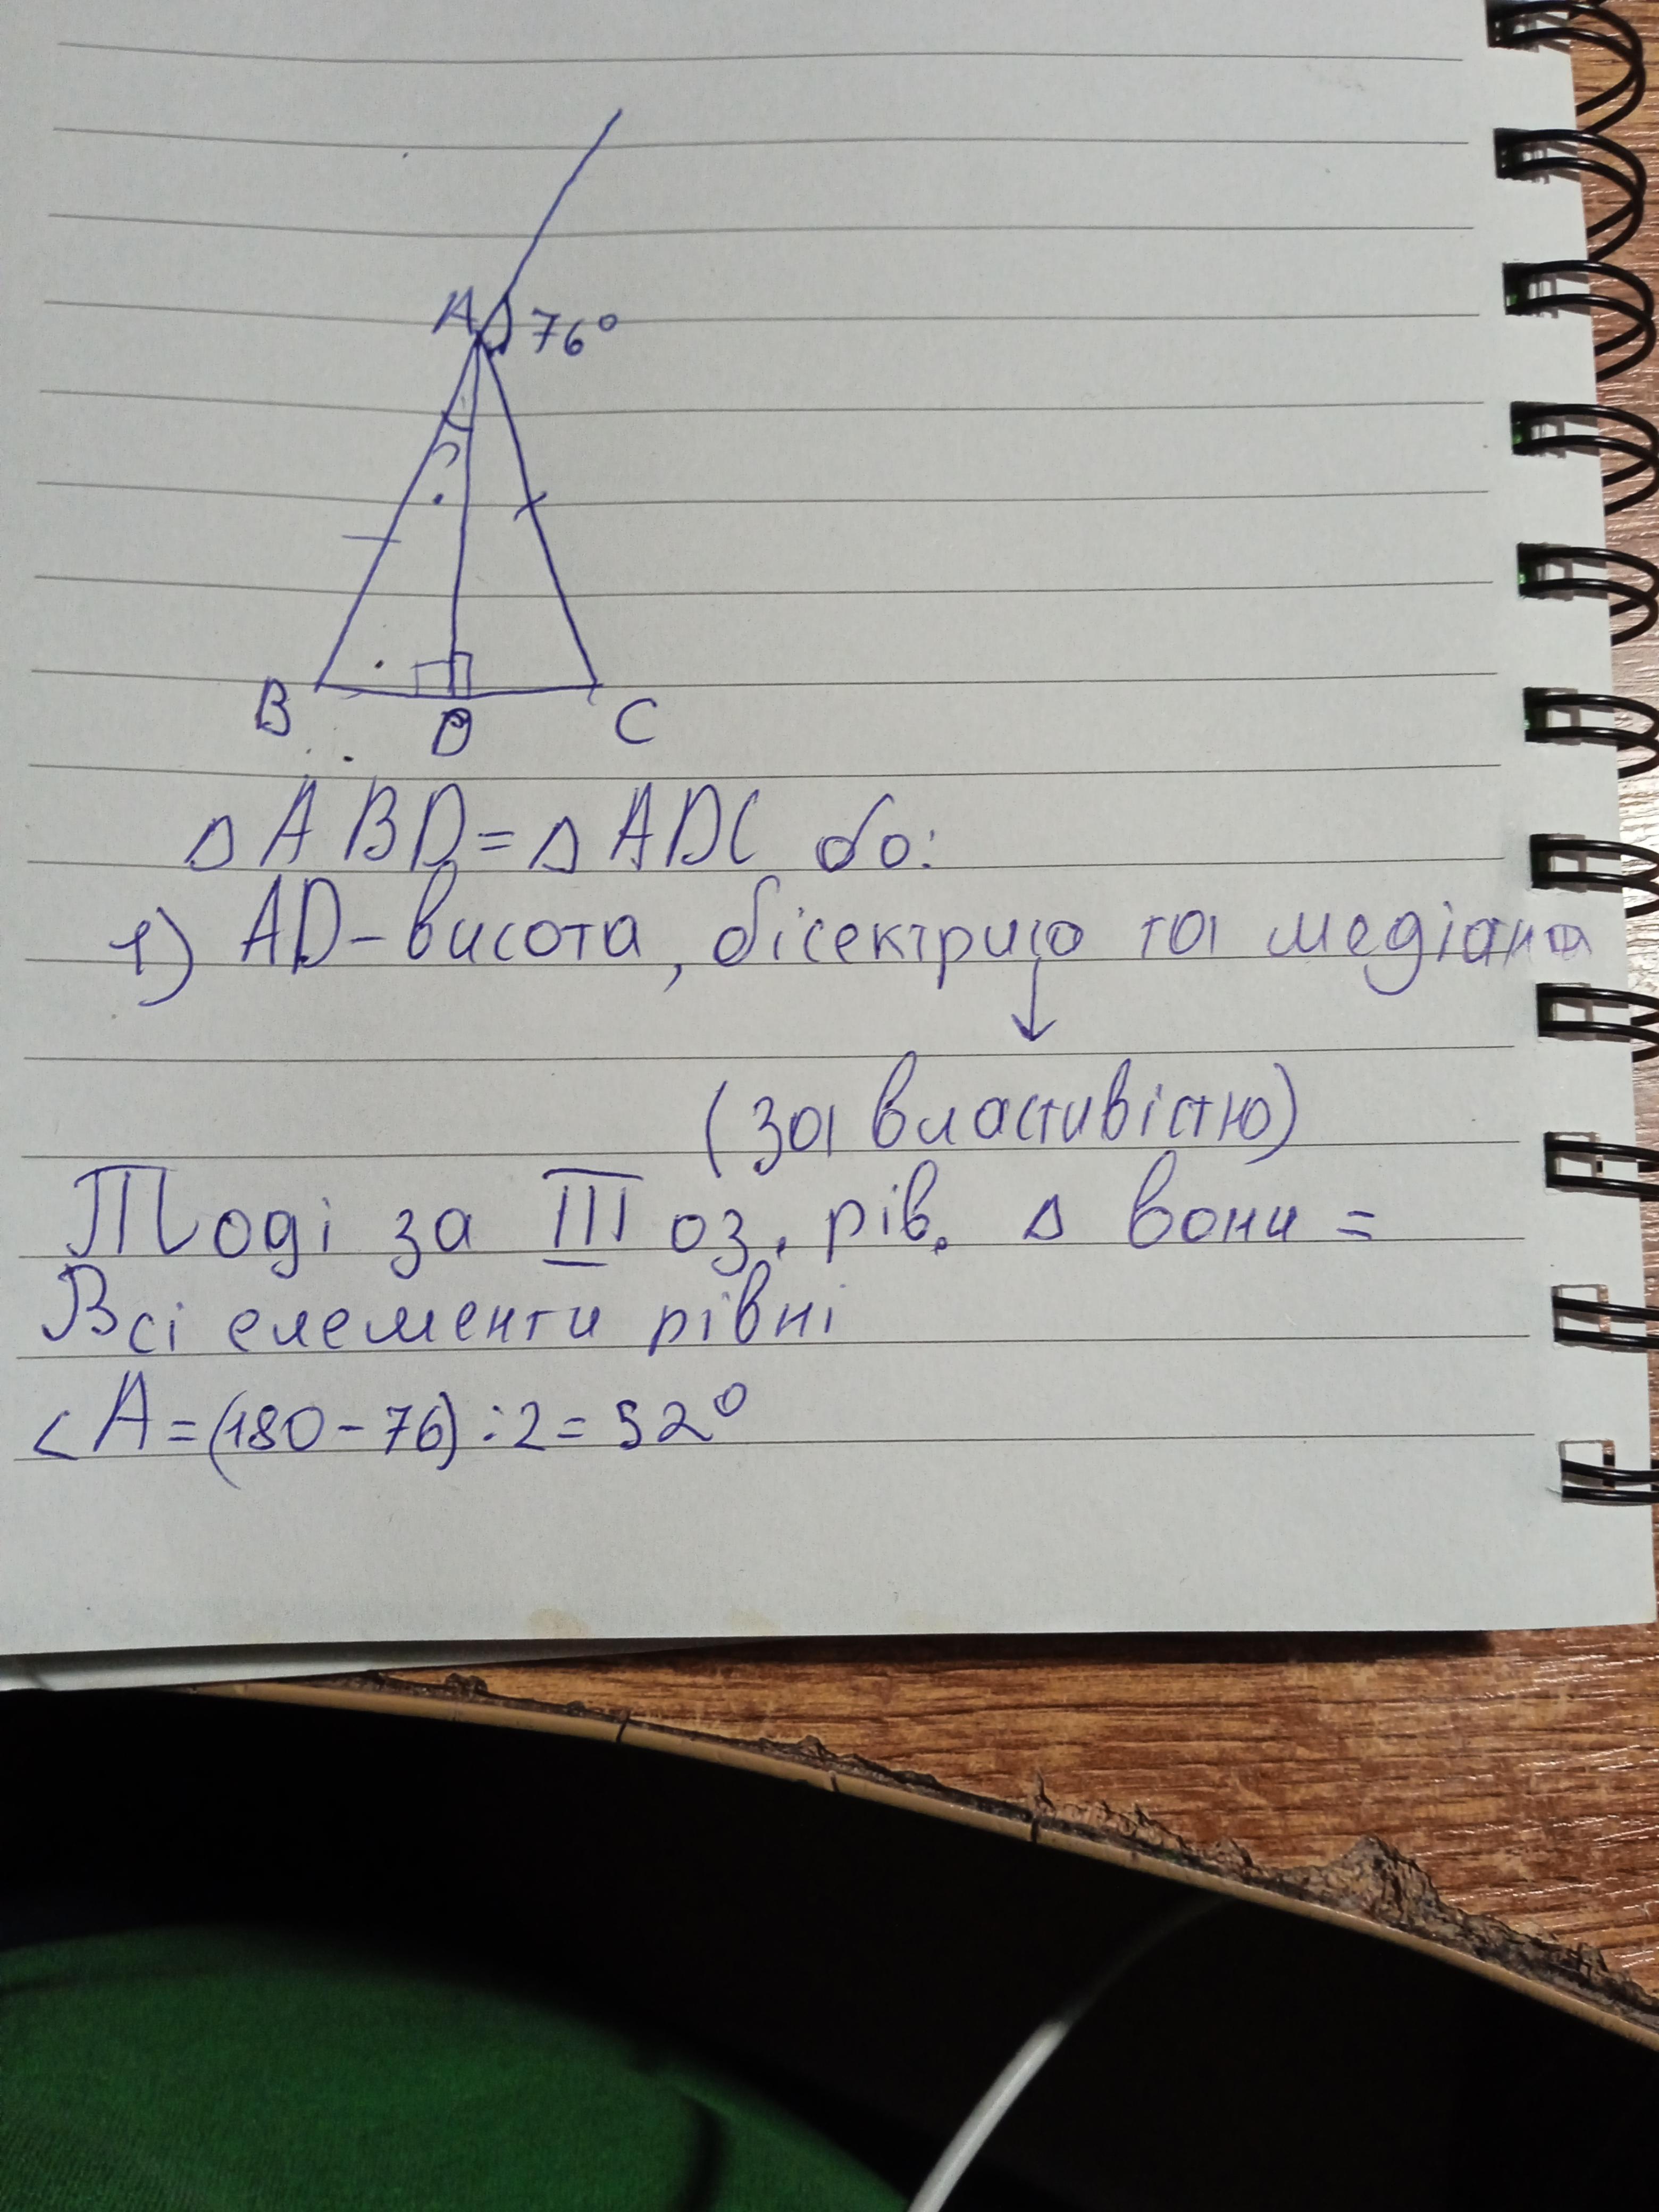 A 76°
B D C
△ABD = △ADC бо:
1) AD - висота, бісектриса та медіана
(за властивістю)
Тоді за III оз. рів. △ вони =
Всі елементи рівні
<A = (180 - 76) : 2 = 52°